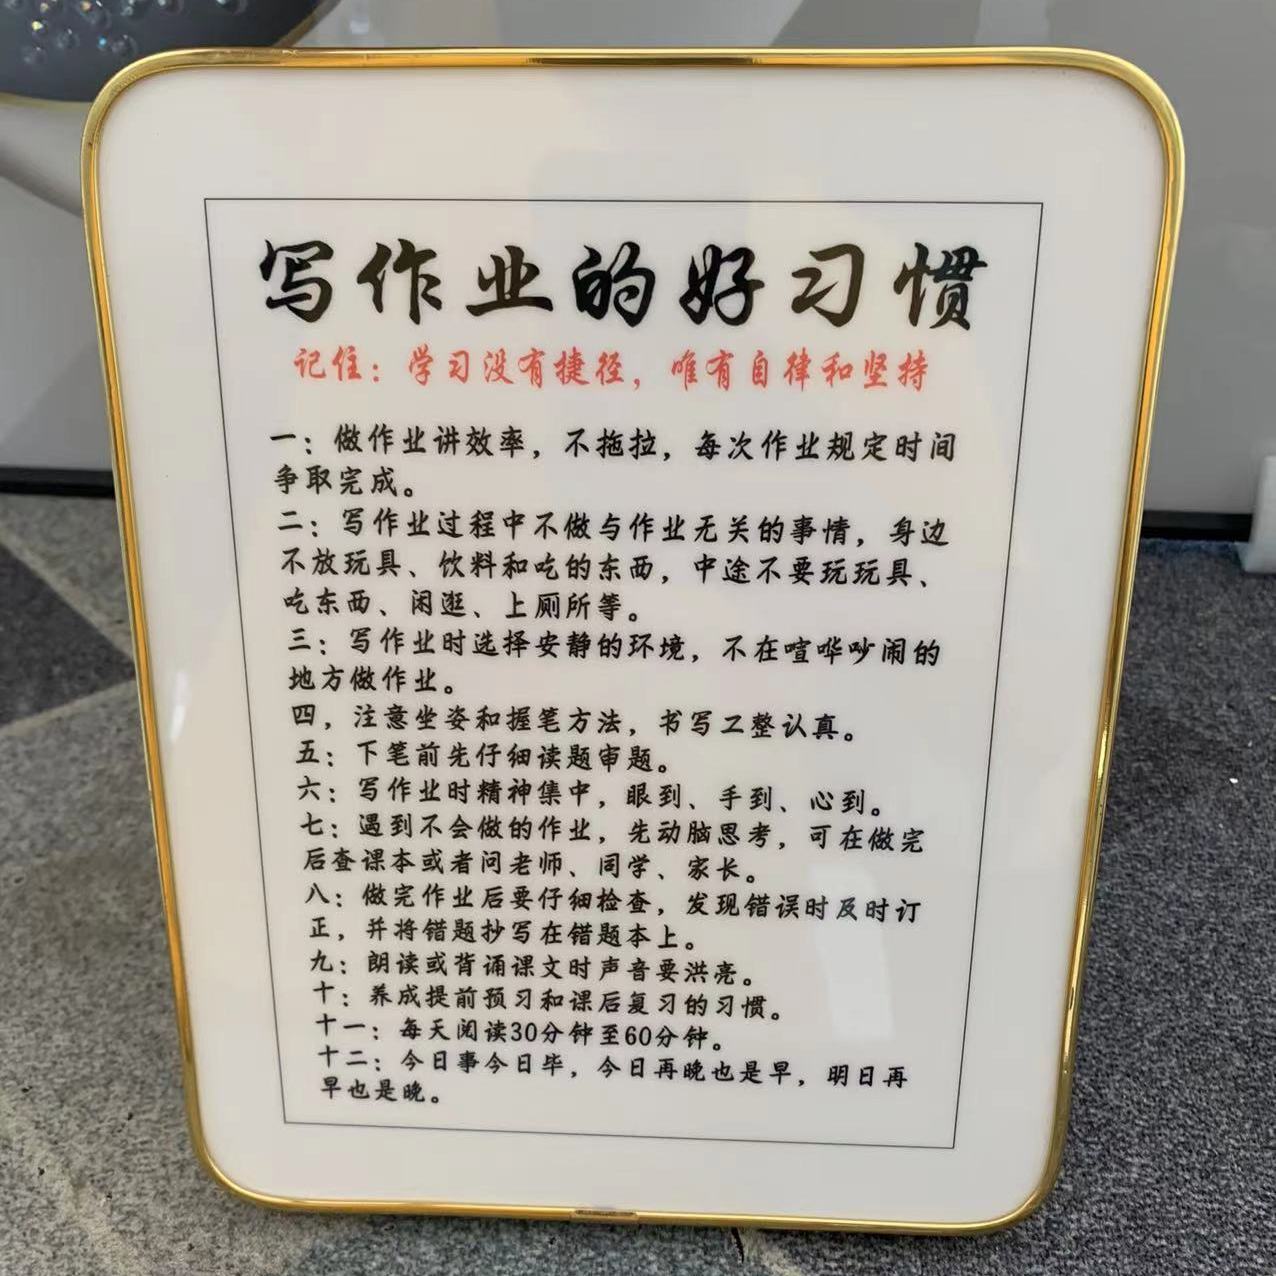 写作业的好习惯
记住：学习没有捷径，唯有自律和坚持
一：做作业讲效率，不拖拉，每次作业规定时间
争取完成。
二：写作业过程中不做与作业无关的事情，身边
不放玩具、饮料和吃的东西，中途不要玩玩具、
吃东西、闲逛、上厕所等。
三：写作业时选择安静的环境，不在喧哗吵闹的
地方做作业。
四，注意坐姿和握笔方法，书写工整认真。
五：下笔前先仔细读题审题。
六：写作业时精神集中，眼到、手到、心到。
七：遇到不会做的作业，先动脑思考，可在做完
后查课本或者问老师、同学、家长。
八：做完作业后要仔细检查，发现错误时及时订
正，并将错题抄写在错题本上。
九：朗读或背诵课文时声音要洪亮。
十：养成提前预习和课后复习的习惯。
十一：每天阅读30分钟至60分钟。
十二：今日事今日毕，今日再晚也是早，明日再
早也是晚。